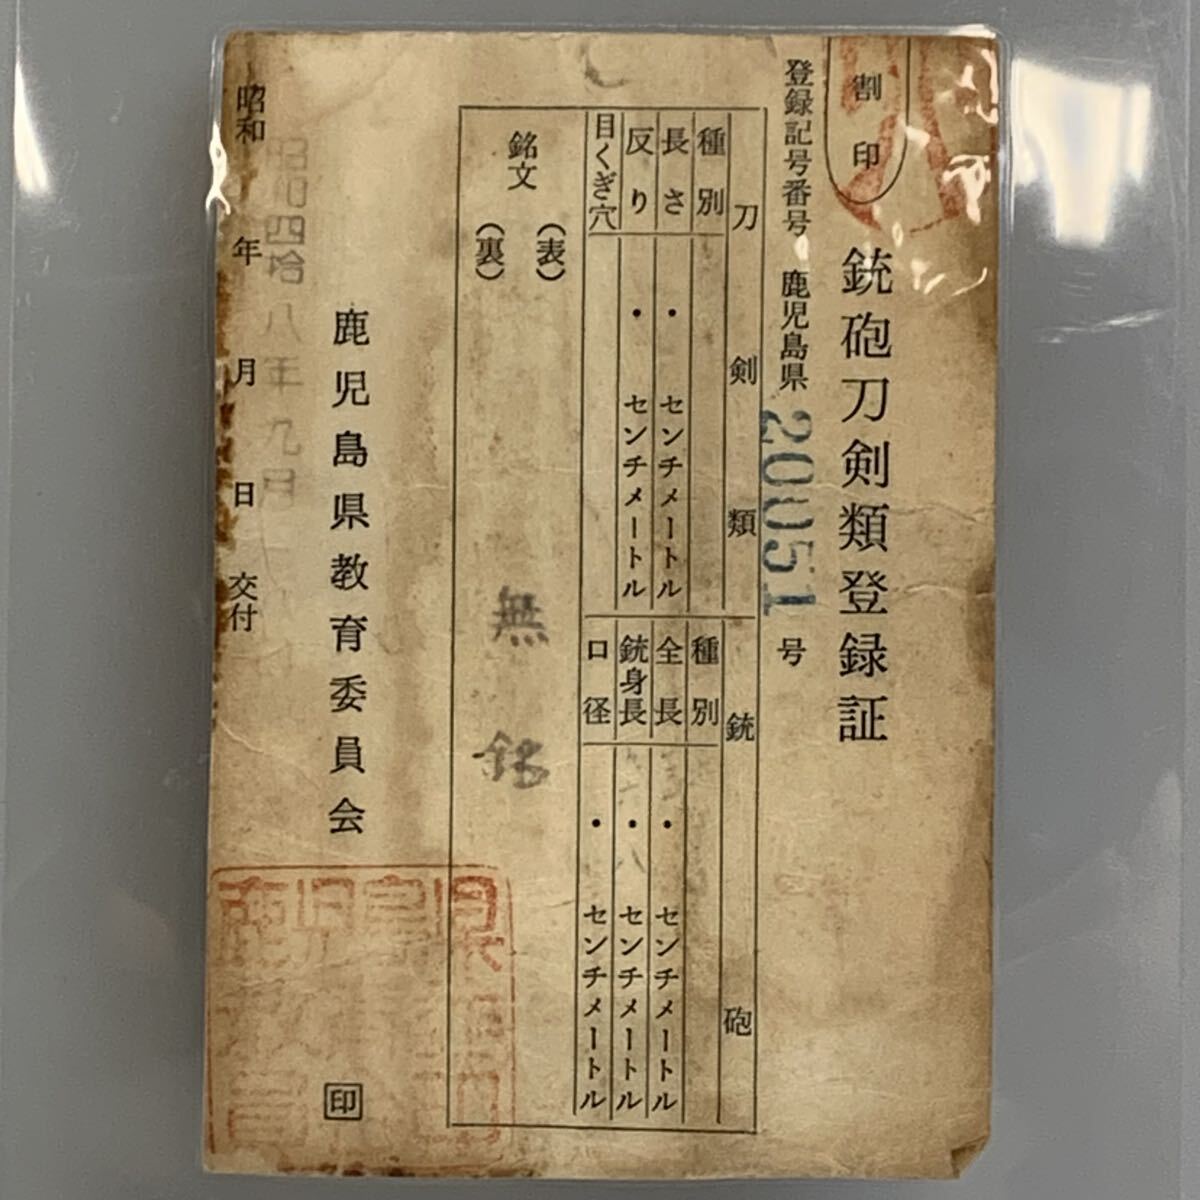 割印
銃砲刀剣類登録証
登録記号番号 鹿児島県 20051 号
刀剣類
種別
長さ ・ センチメートル
反り ・ センチメートル
目くぎ穴
銃砲
種別
全長 ・ センチメートル
銃身長 ・八 センチメートル
口径 ・ センチメートル
銘文
(表)
(裏)
無銘
鹿児島県教育委員会 印
昭和四拾八年九月
昭和 年 月 日 交付